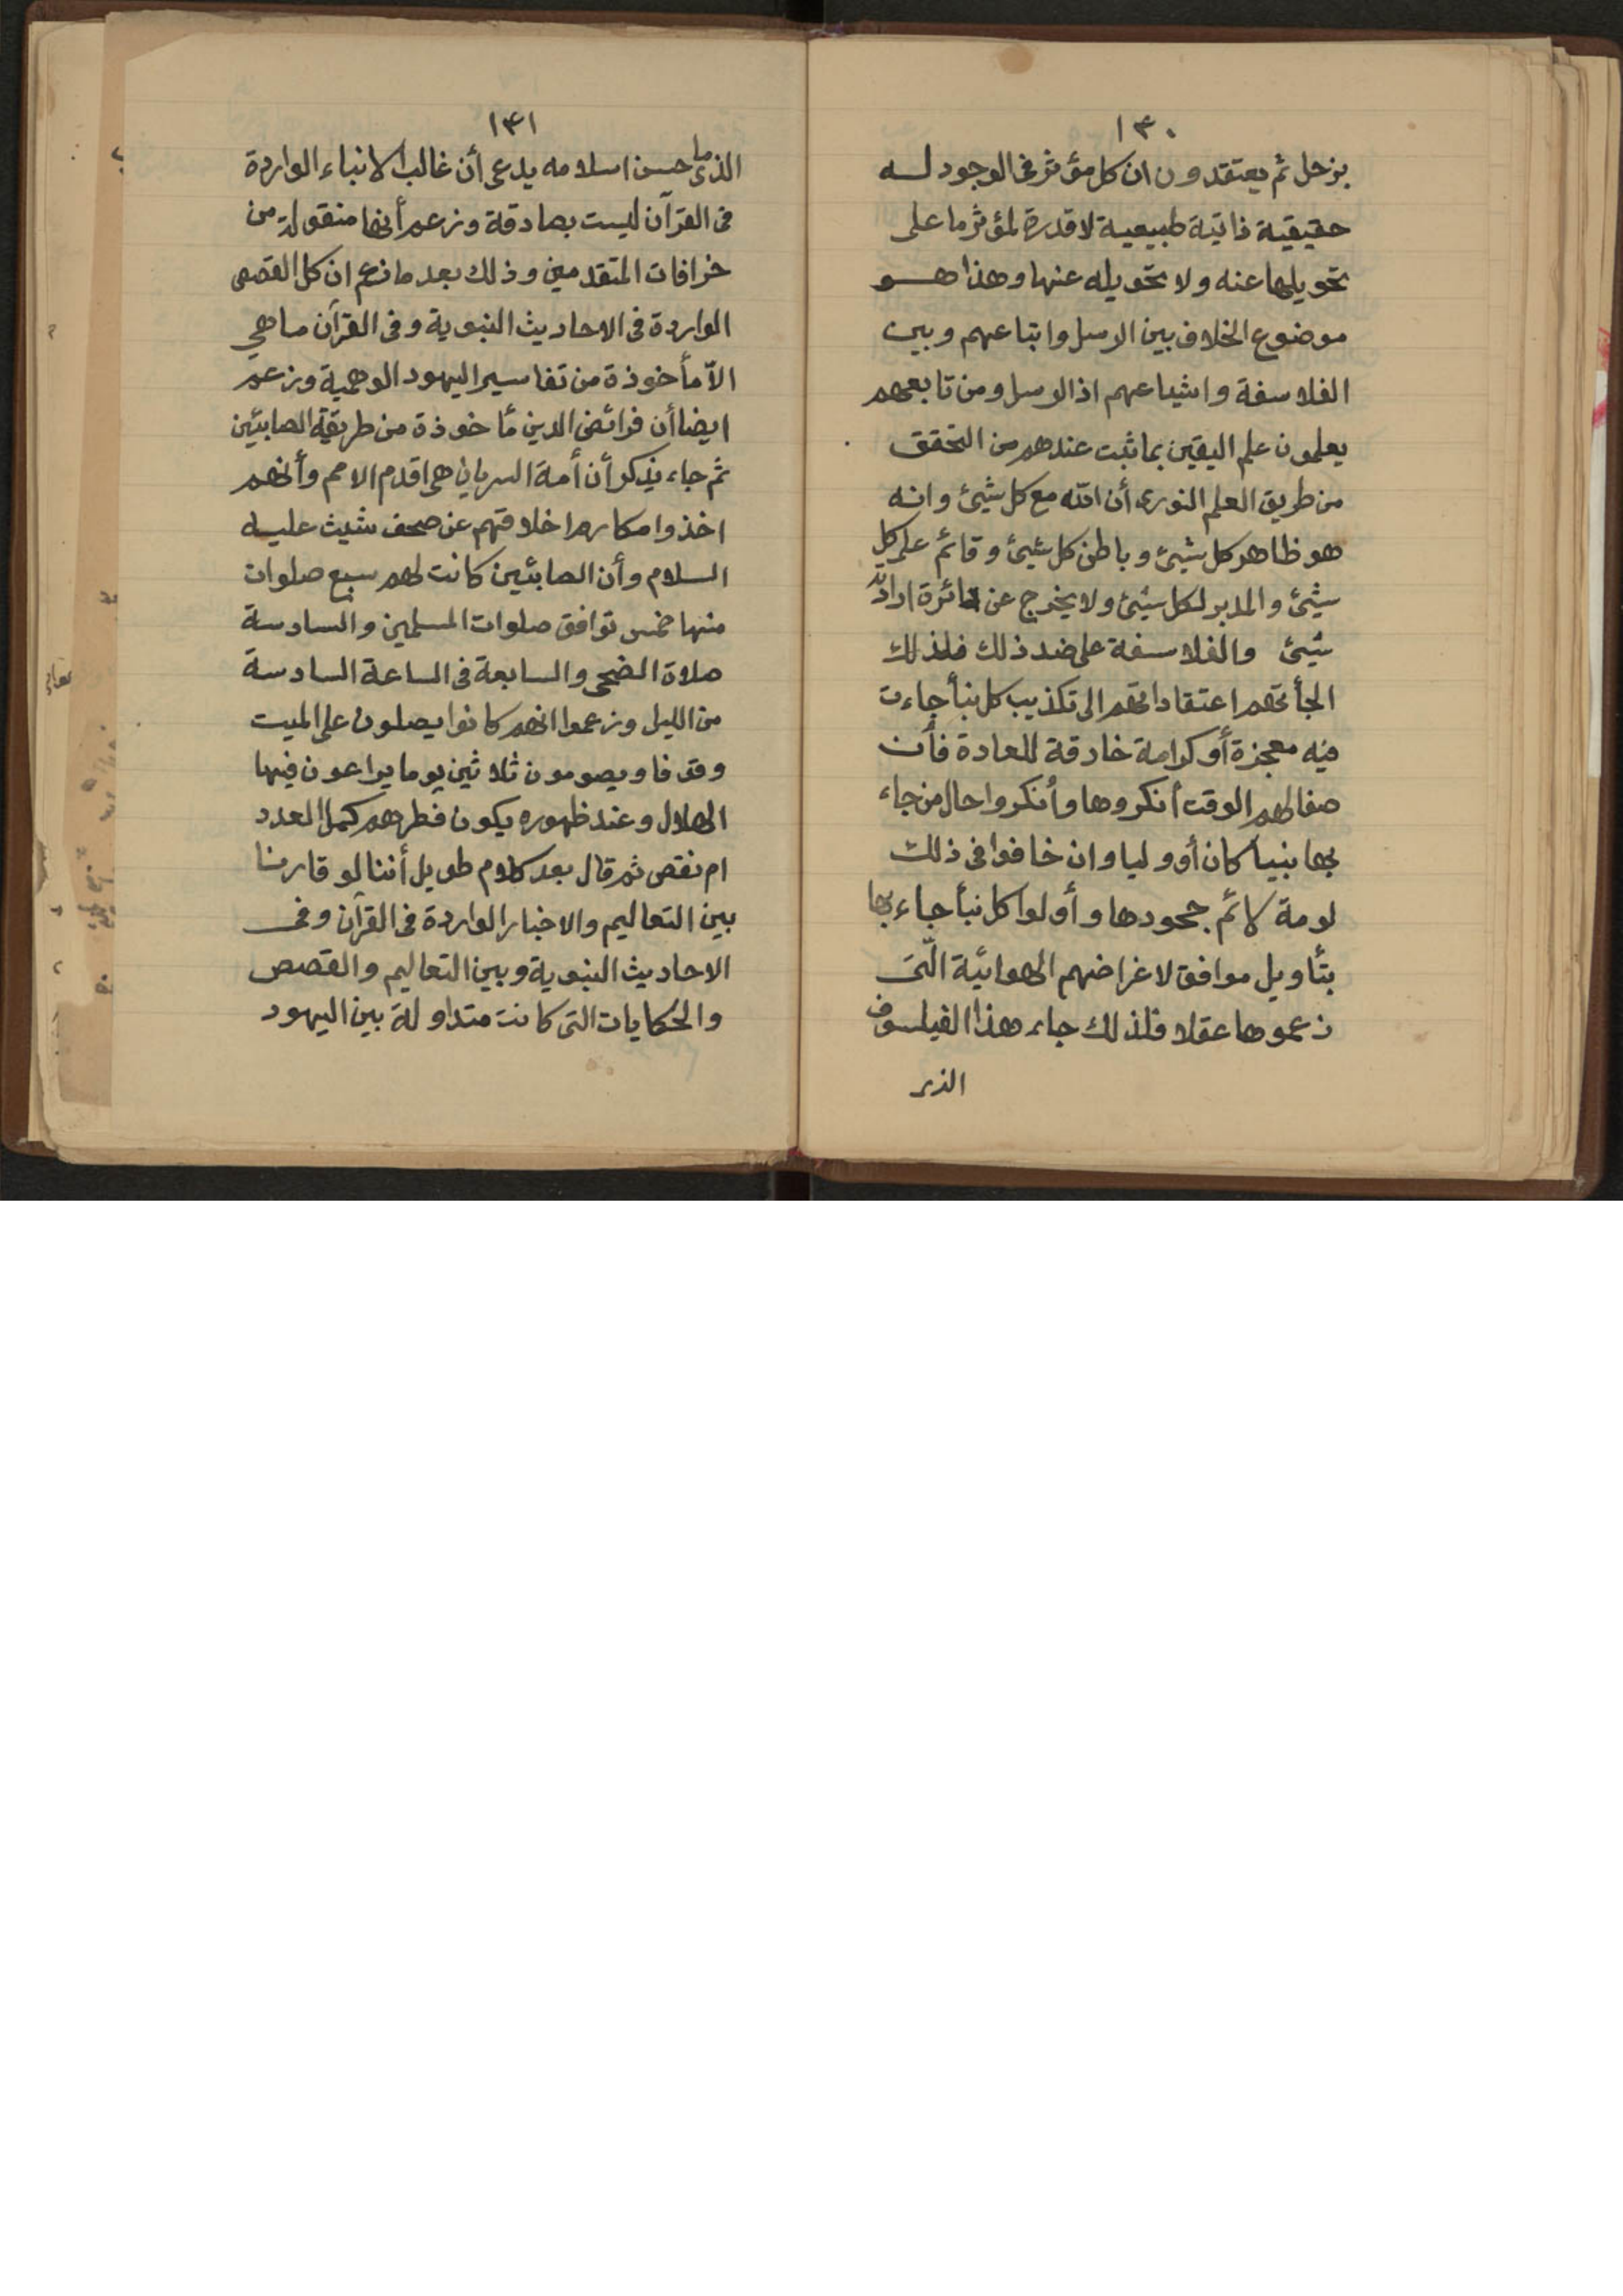 ١٣٠
بزحل ثم يعتقدون ان كل مؤثر فى الوجود له
حقيقية ذاتية طبيعية لا قدرة لمؤثر ما على
تحويلها عنه ولا تحويله عنها وهذا هو
موضوع الخلاف بين الرسل واتباعهم وبين
الفلاسفة واشياعهم اذ الرسل ومن تابعهم
يعلمون علم اليقين بما ثبت عندهم من التحقق
من طريق العلم النورى أن الله مع كل شيئ وانه
هو ظاهر كل شيئ وباطن كل شيئ وقائم على كل
شيئ والمدبر لكل شيئ ولا يخرج عن دائرة ارادته
شيئ والفلاسفة على ضد ذلك فلذلك
الجأتهم اعتقاداتهم الى تكذيب كل نبأ جاءت
فيه معجزة أو كرامة خارقة للعادة فأن
صفا لهم الوقت أنكروها وأنكروا حال من جاء
بها نبيا كان أو وليا وان خافوا فى ذلك
لومة لائم جحودها وأولوا كل نبأ جاء بها
بتأويل موافق لاغراضهم الهوائية الّتى
زعموها عقلا فلذلك جاء هذا الفيلسوف
الذى
١٣١
الذى ما حسن اسلامه يدعى أن غالب الانباء الواردة
فى القرآن ليست بصادقة وزعم أنها منقولة من
خرافات المتقدمين وذلك بعد ما زعم ان كل القصص
الواردة فى الاحاديث النبوية وفى القرآن ما هي
الاّ مأخوذة من تفاسير اليهود الوهمية وزعم
ايضا أن فرائض الدين مأخوذة من طريقة الصابئين
ثم جاء يذكر أن أمة السريان هى اقدم الامم وأنهم
اخذوا مكارم اخلاقهم عن صحف شيث عليه
السلام وأن الصابئين كانت لهم سبع صلوات
منها خمس توافق صلوات المسلمين والسادسة
صلاة الضحى والسابعة فى الساعة السادسة
من الليل وزعموا انهم كانوا يصلون على الميت
وقوفا ويصومون ثلاثين يوما يراعون فيها
الهلال وعند ظهوره يكون فطرهم كمل العدد
ام نقص ثم قال بعد كلام طويل أننا لو قارنا
بين التعاليم والاخبار الواردة فى القرآن وفى
الاحاديث النبوية وبين التعاليم والقصص
والحكايات التى كانت متداولة بين اليهود